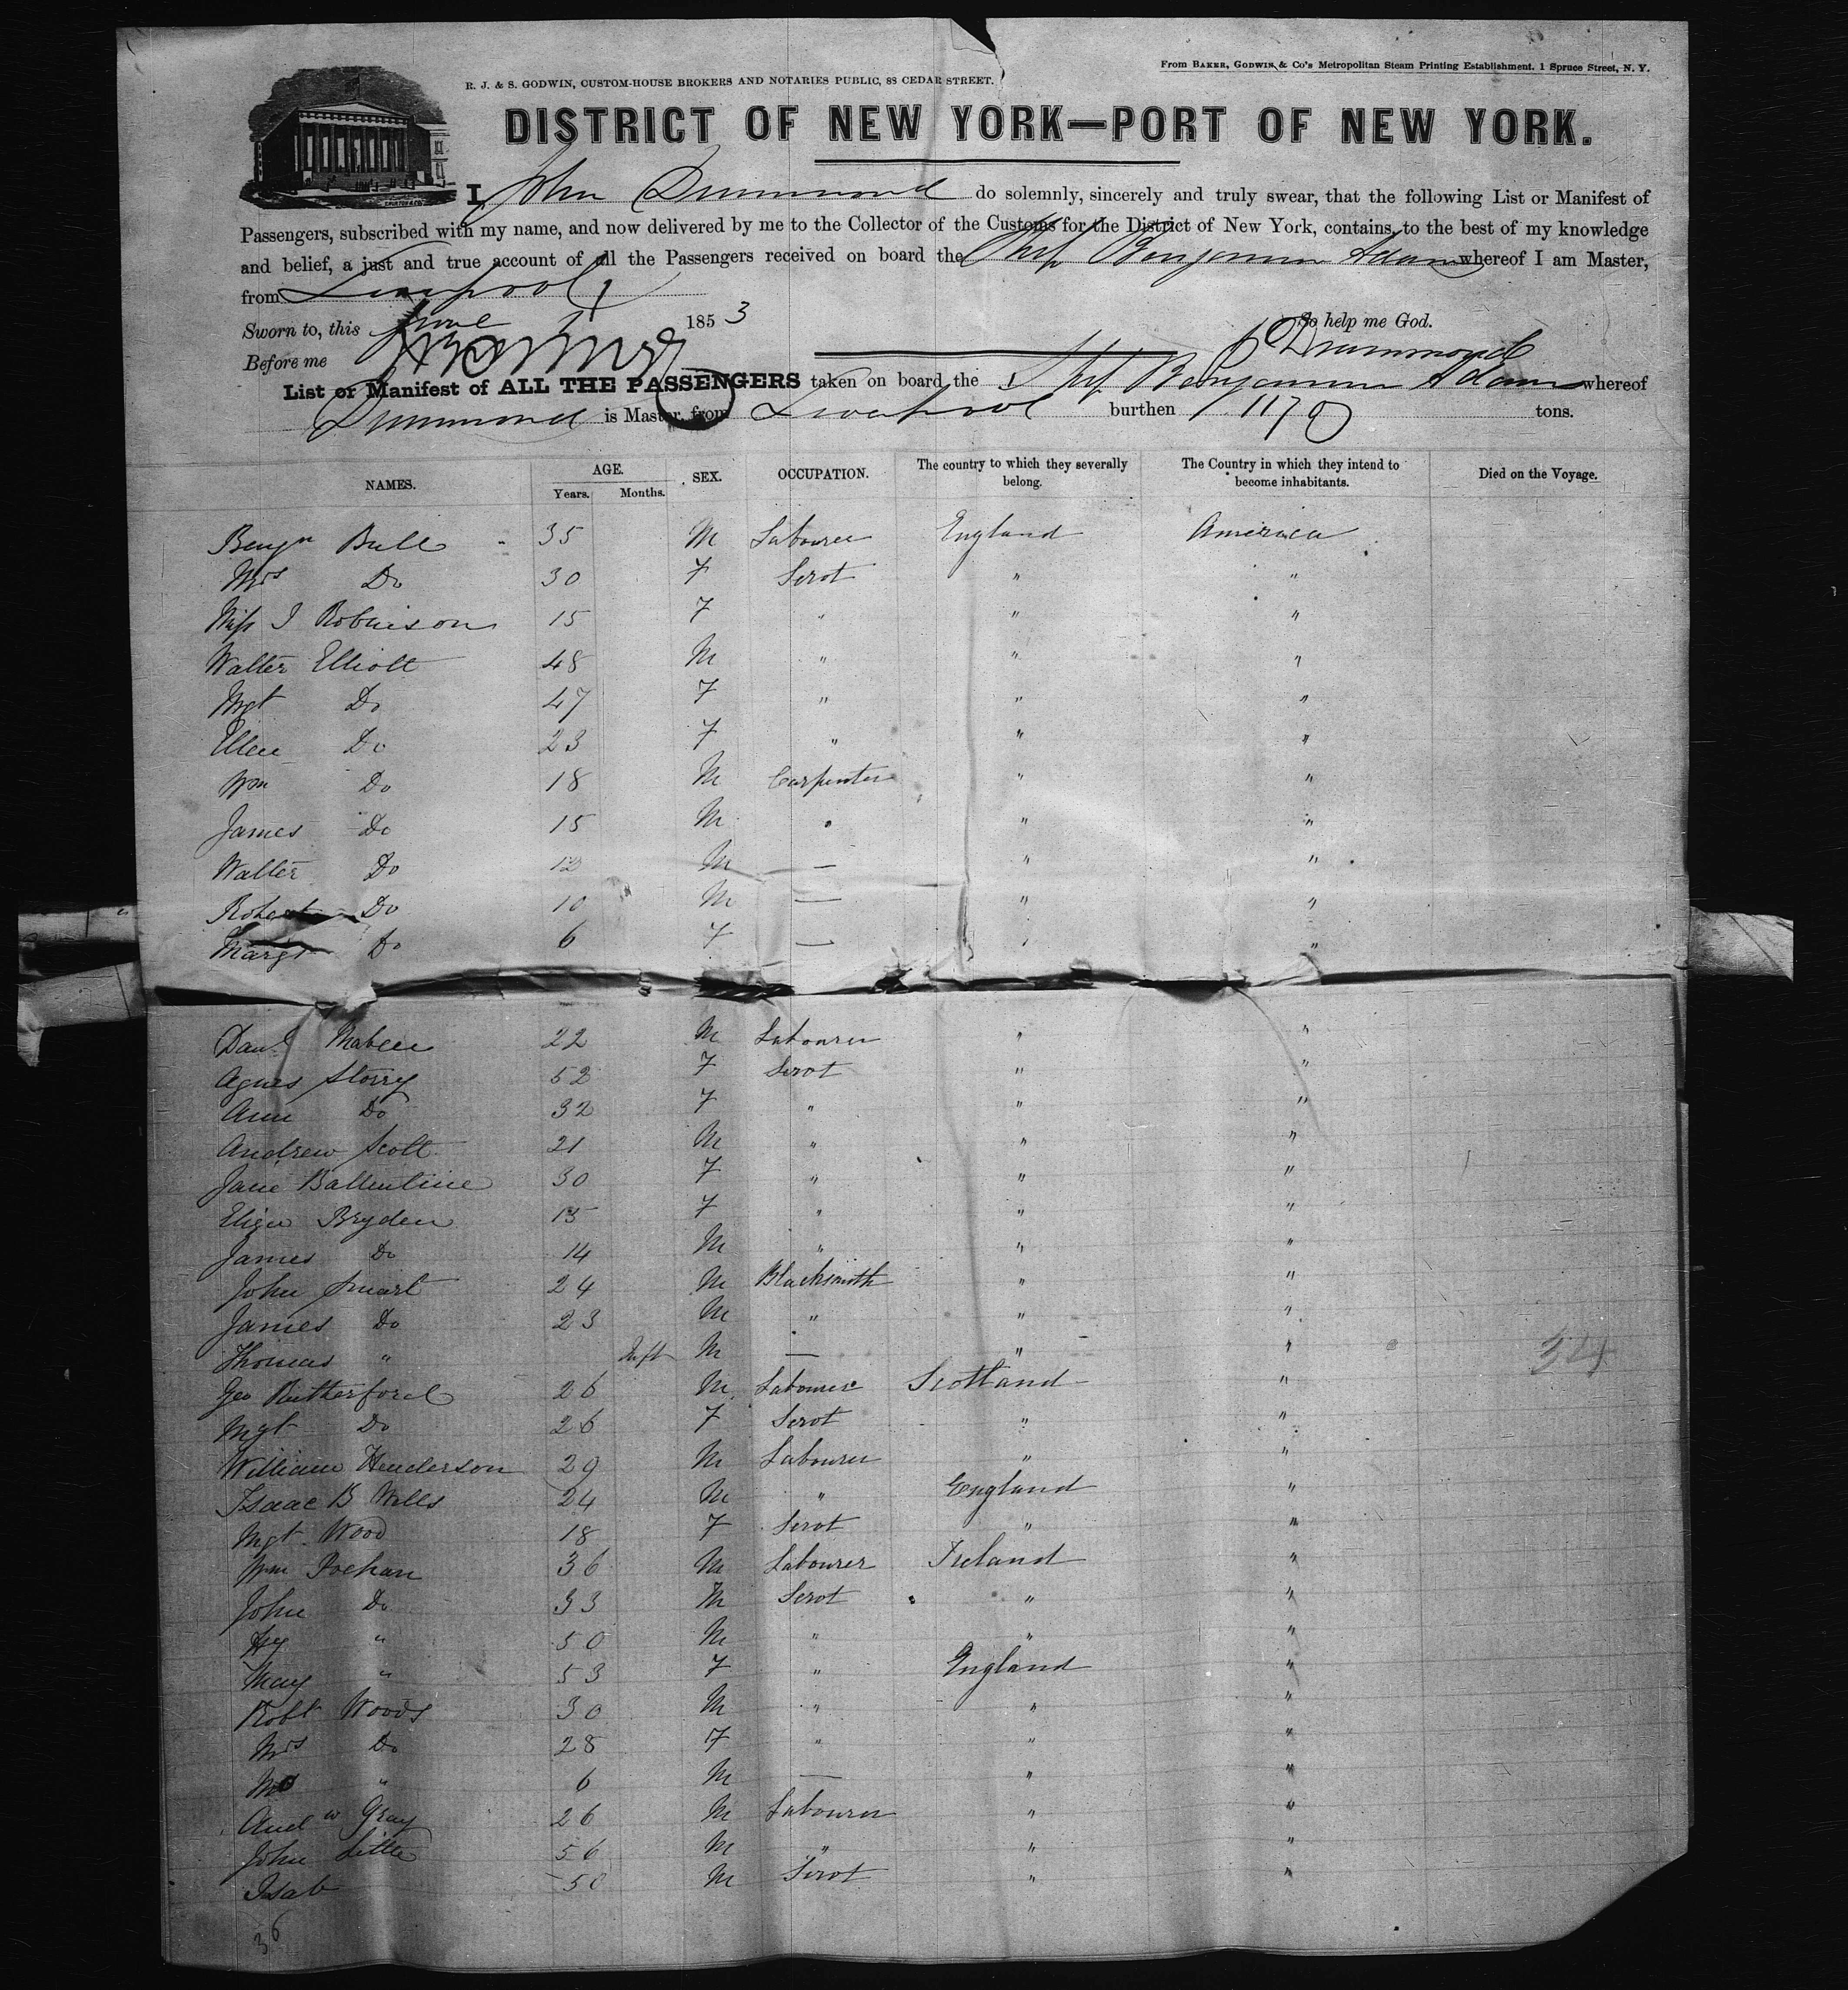 From BAKER, GODWIN, & Co's Metropolitan Steam Printing Establishment. 1 Spruce Street, N. Y.
R. J. & S. GODWIN, CUSTOM-HOUSE BROKERS AND NOTARIES PUBLIC, 88 CEDAR STREET.
DISTRICT OF NEW YORK—PORT OF NEW YORK.
I, John Drummond do solemnly, sincerely and truly swear, that the following List or Manifest of
Passengers, subscribed with my name, and now delivered by me to the Collector of the Customs for the District of New York, contains, to the best of my knowledge
and belief, a just and true account of all the Passengers received on board the Ship Benjamin Adams whereof I am Master,
from Liverpool
Sworn to, this June 1 1853 So help me God.
Before me J Drummond
List or Manifest of ALL THE PASSENGERS taken on board the Ship Benjamin Adams whereof
Drummond is Master, from Liverpool burthen 1170 tons.
NAMES. AGE. Years. Months. SEX. OCCUPATION. The country to which they severally belong. The Country in which they intend to become inhabitants. Died on the Voyage.
Benjn Bull 35 M Labourer England America
Mrs Do 30 F Serot " "
Miss J Robinson 15 F " " "
Walter Elliott 48 M " " "
Mgt Do 47 F " " "
Ellen Do 23 F " " "
Wm Do 18 M Carpenter " "
James Do 15 M " " "
Walter Do 12 M — " "
Robert Do 10 M — " "
Margt Do 6 F — " "
Danl 22 M Labourer " "
Agnes Storry 52 F Serot " "
Ann Do 32 F " " "
Andrew Scott 21 M " " "
Jane Ballentine 30 F " " "
Eliza Bryden 15 F " " "
James Do 14 M " " "
John Smart 24 M Blacksmith " "
James Do 23 M " " "
Thomas " Inft M — " "
34
Geo Rutherford 26 M Labourer Scotland "
Mgt Do 26 F Serot " "
William Henderson 29 M Labourer " "
Isaac B Wells 24 M " England "
Mgt Wood 18 F Serot " "
Wm 36 M Labourer Ireland "
John Do 33 M Serot " "
Hy " 50 M " " "
Mary " 53 F " England "
Robt Woods 30 M " " "
Mrs Do 28 F " " "
" 6 M — " "
Andw Gray 26 M Labourer " "
John Little 56 M " " "
Isab 50 M Serot " "
36